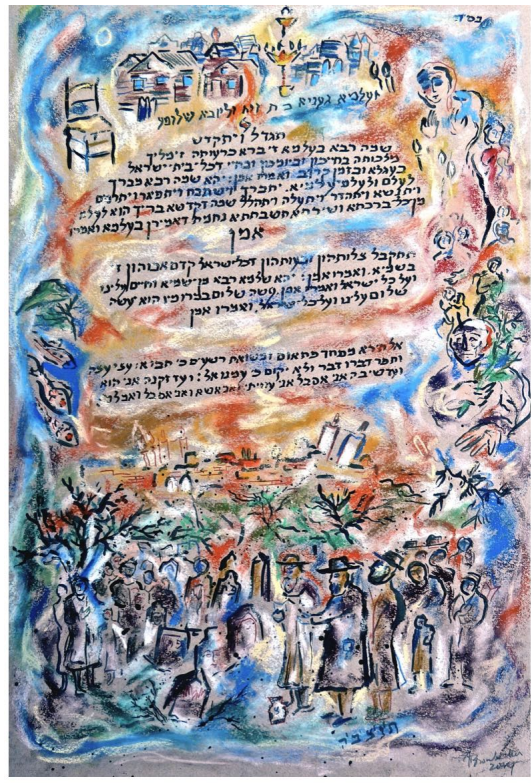 בס"ד
יתגדל ויתקדש
שמה רבא בעלמא די ברא כרעותה וימליך
מלכותה בחייכון וביומיכון ובחיי דכל בית ישראל
בעגלא ובזמן קריב ואמרו אמן: יהא שמה רבא מברך
לעלם ולעלמי עלמיא. יתברך וישתבח ויתפאר ויתרומם
ויתנשא ויתהדר ויתעלה ויתהלל שמה דקדשא בריך הוא לעלא
מן כל ברכתא ושירתא תשבחתא נחמתא דאמירן בעלמא ואמרו
אמן
תתקבל צלותהון ובעותהון דכל ישראל קדם אבוהון די
בשמיא. ואמרו אמן: יהא שלמא רבא מן שמיא וחיים עלינו
ועל כל ישראל ואמרו אמן. עושה שלום במרומיו הוא יעשה
שלום עלינו ועל כל ישראל, ואמרו אמן
אל תירא מפחד פתאום ומשואת רשעים כי תבוא: עצו עצה
ותפר דברו דבר ולא יקום כי עמנו אל: ועד זקנה אני הוא
ועד שיבה אני אסבל אני עשיתי ואני אשא ואני אסבל ואמלט
2014